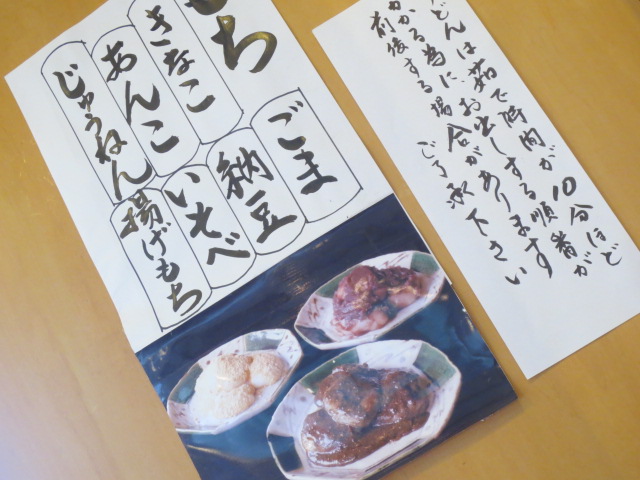 もち
きなこ
あんこ
じゅうねん
ごま
納豆
いそべ
揚げもち
どんは茹で時間が10分ほど
かかる為に、お出しする順番が
前後する場合があります
ご了承下さい